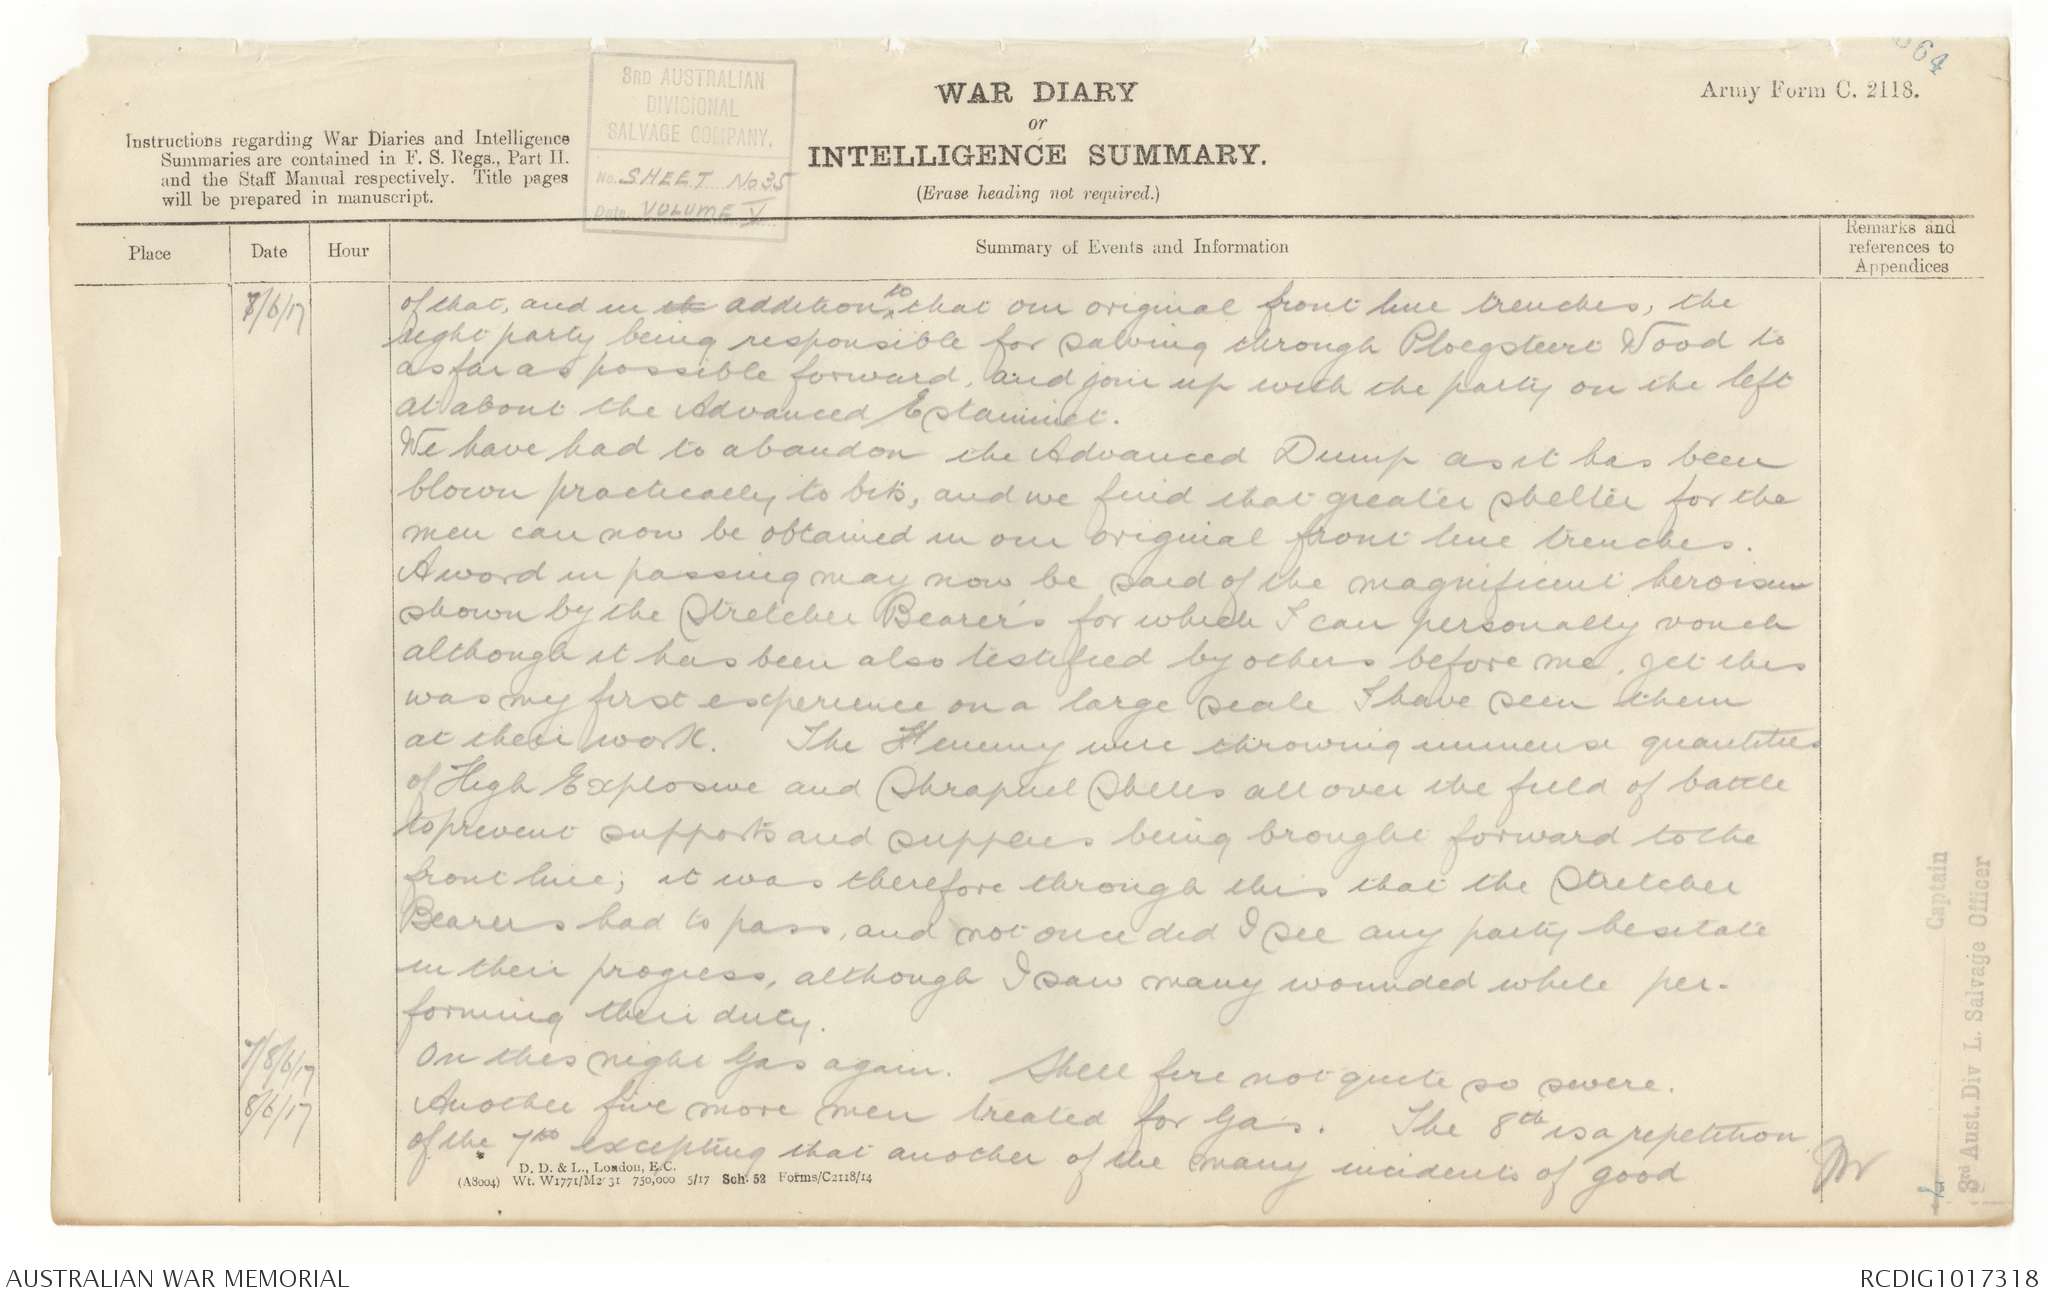 364
3RD AUSTRALIAN
DIVISIONAL
SALVAGE COMPANY.
No. SHEET No 35
Date. VOLUME V
WAR DIARY
or
INTELLIGENCE SUMMARY.
(Erase heading not required.)
Army Form C. 2118.
Instructions regarding War Diaries and Intelligence
Summaries are contained in F. S. Regs., Part II.
and the Staff Manual respectively. Title pages
will be prepared in manuscript.
Place
Date
Hour
Summary of Events and Information
Remarks and
references to
Appendices
7/6/17
of that, and in addition to that our original front line trenches, the
right party being responsible for salving through Ploegsteert Wood to
as far as possible forward, and join up with the party on the left
at about the Advanced Estaminet.
We have had to abandon the Advanced Dump as it has been
blown practically to bits, and we find that greater shelter for the
men can now be obtained in our original front line trenches.
A word in passing may now be said of the magnificent heroism
shown by the Stretcher Bearer's for which I can personally vouch
although it has been also testified by others before me, yet this
was my first experience on a large scale I have seen them
at their work. The Enemy were throwing immense quantities
of High Explosive and Shrapnel Shells all over the field of battle
to prevent supports and supplies being brought forward to the
front line; it was therefore through this that the Stretcher
Bearers had to pass, and not once did I see any party hesitate
in their progress, although I saw many wounded while per-
forming their duty.
7/8/6/17
On this night Gas again. Shell fire not quite so severe.
8/6/17
Another five more men treated for Gas. The 8th is a repetition
of the 7th excepting that another of the many incidents of good
D. D. & L., London, E.C.
(A8004) Wt. W1771/M2031 750,000 5/17 Sch. 52 Forms/C2118/14
Captain
3rd Aust. Div L. Salvage Officer
AUSTRALIAN WAR MEMORIAL
RCDIG1017318